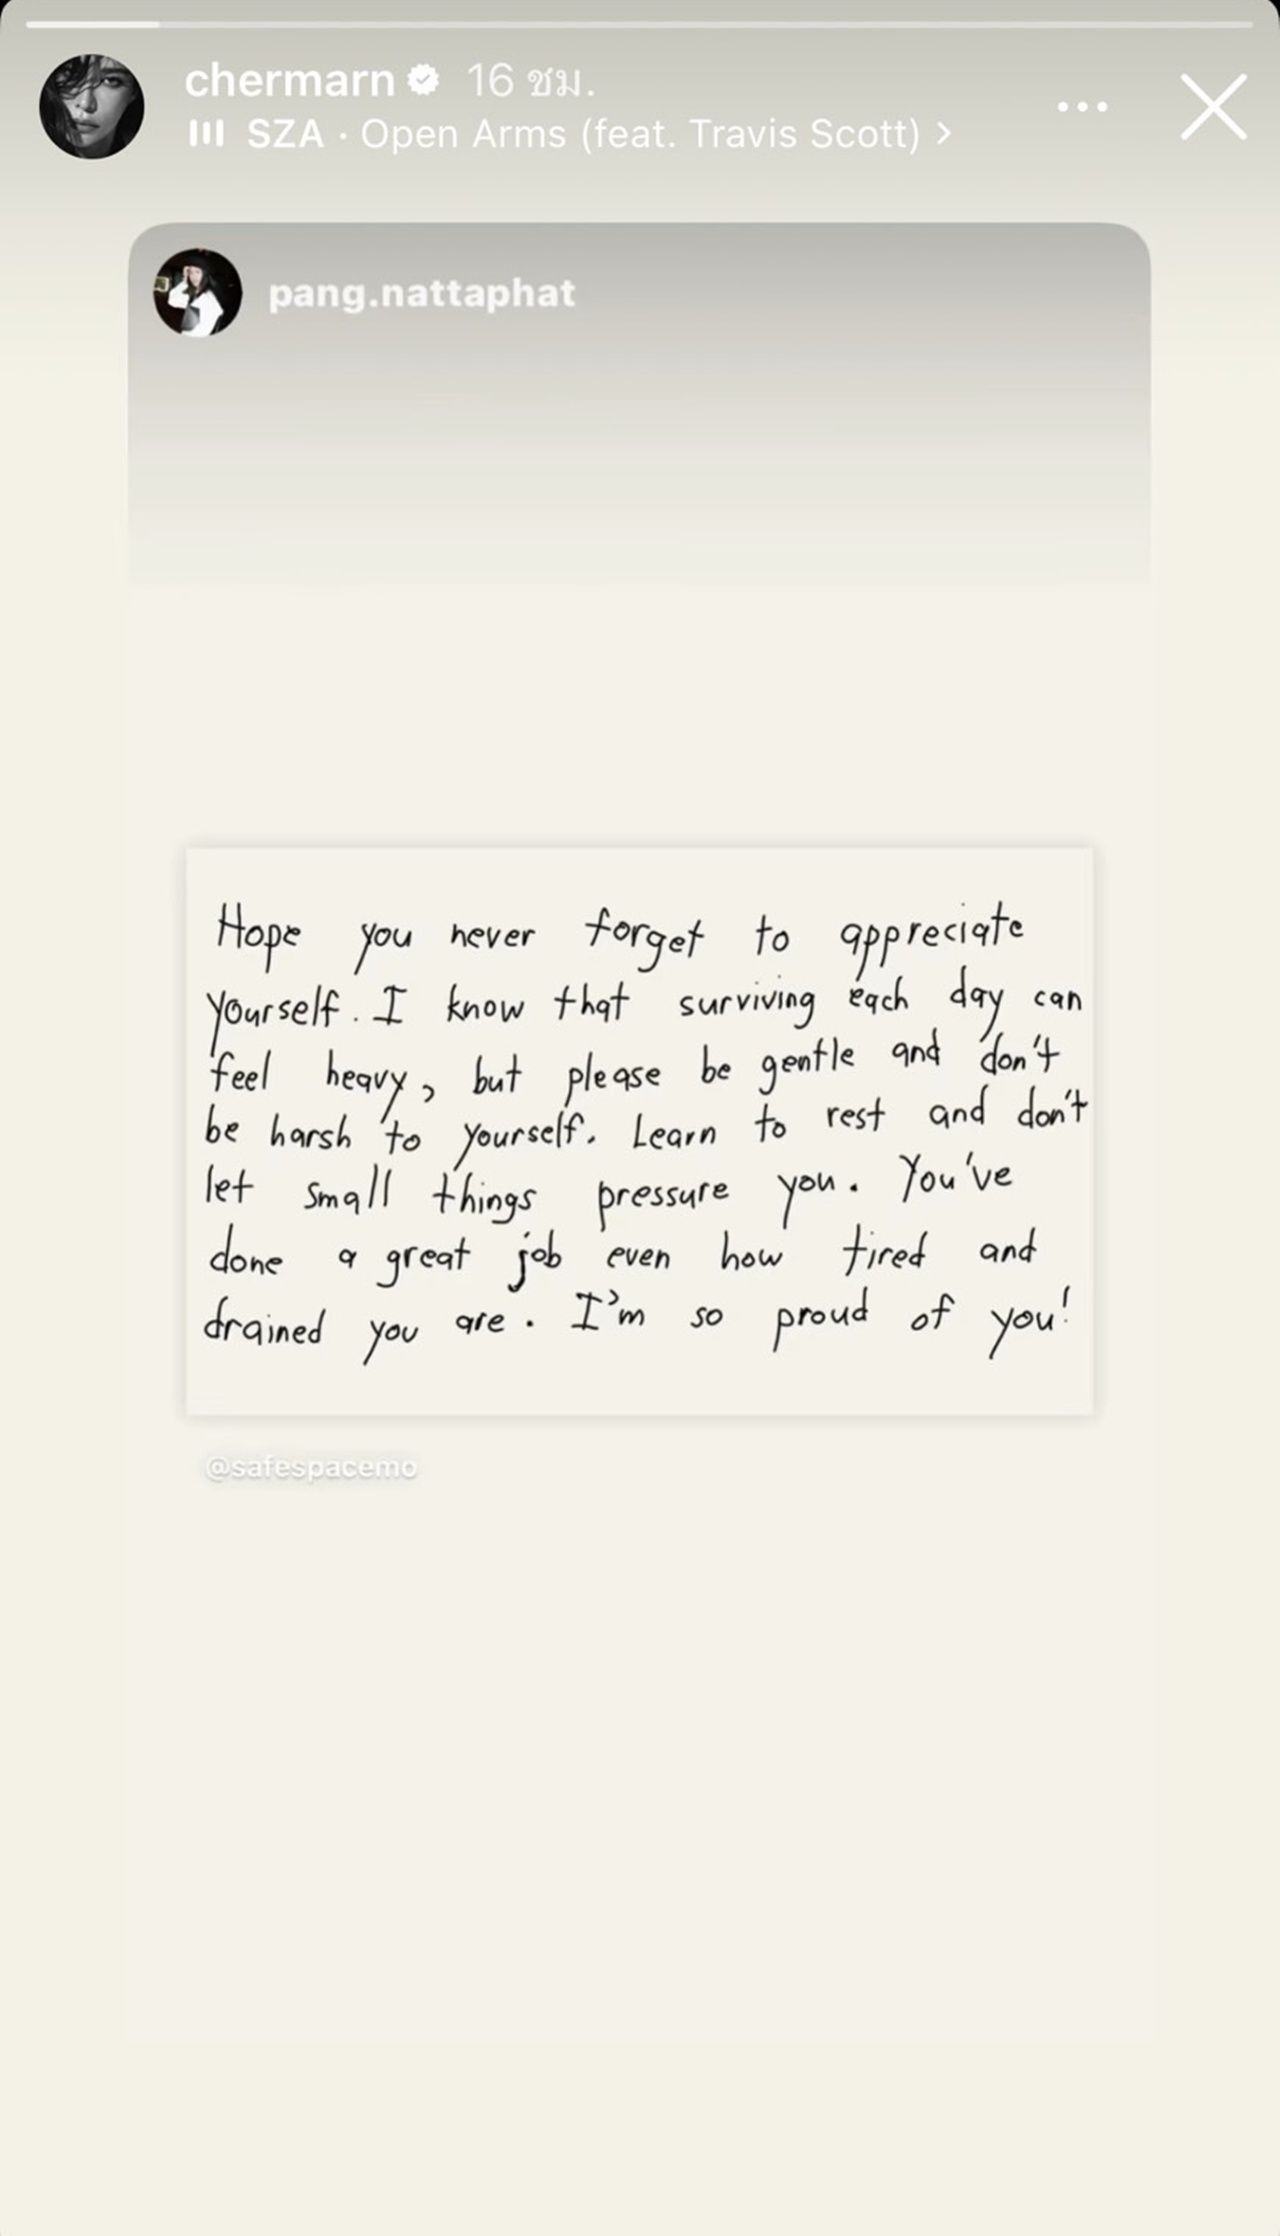 chermarn 16 ชม.
SZA · Open Arms (feat. Travis Scott) >
pang.nattaphat
Hope you never forget to appreciate
yourself. I know that surviving each day can
feel heavy, but please be gentle and don't
be harsh to yourself. Learn to rest and don't
let small things pressure you. You've
done a great job even how tired and
drained you are. I'm so proud of you!
@safespacemo